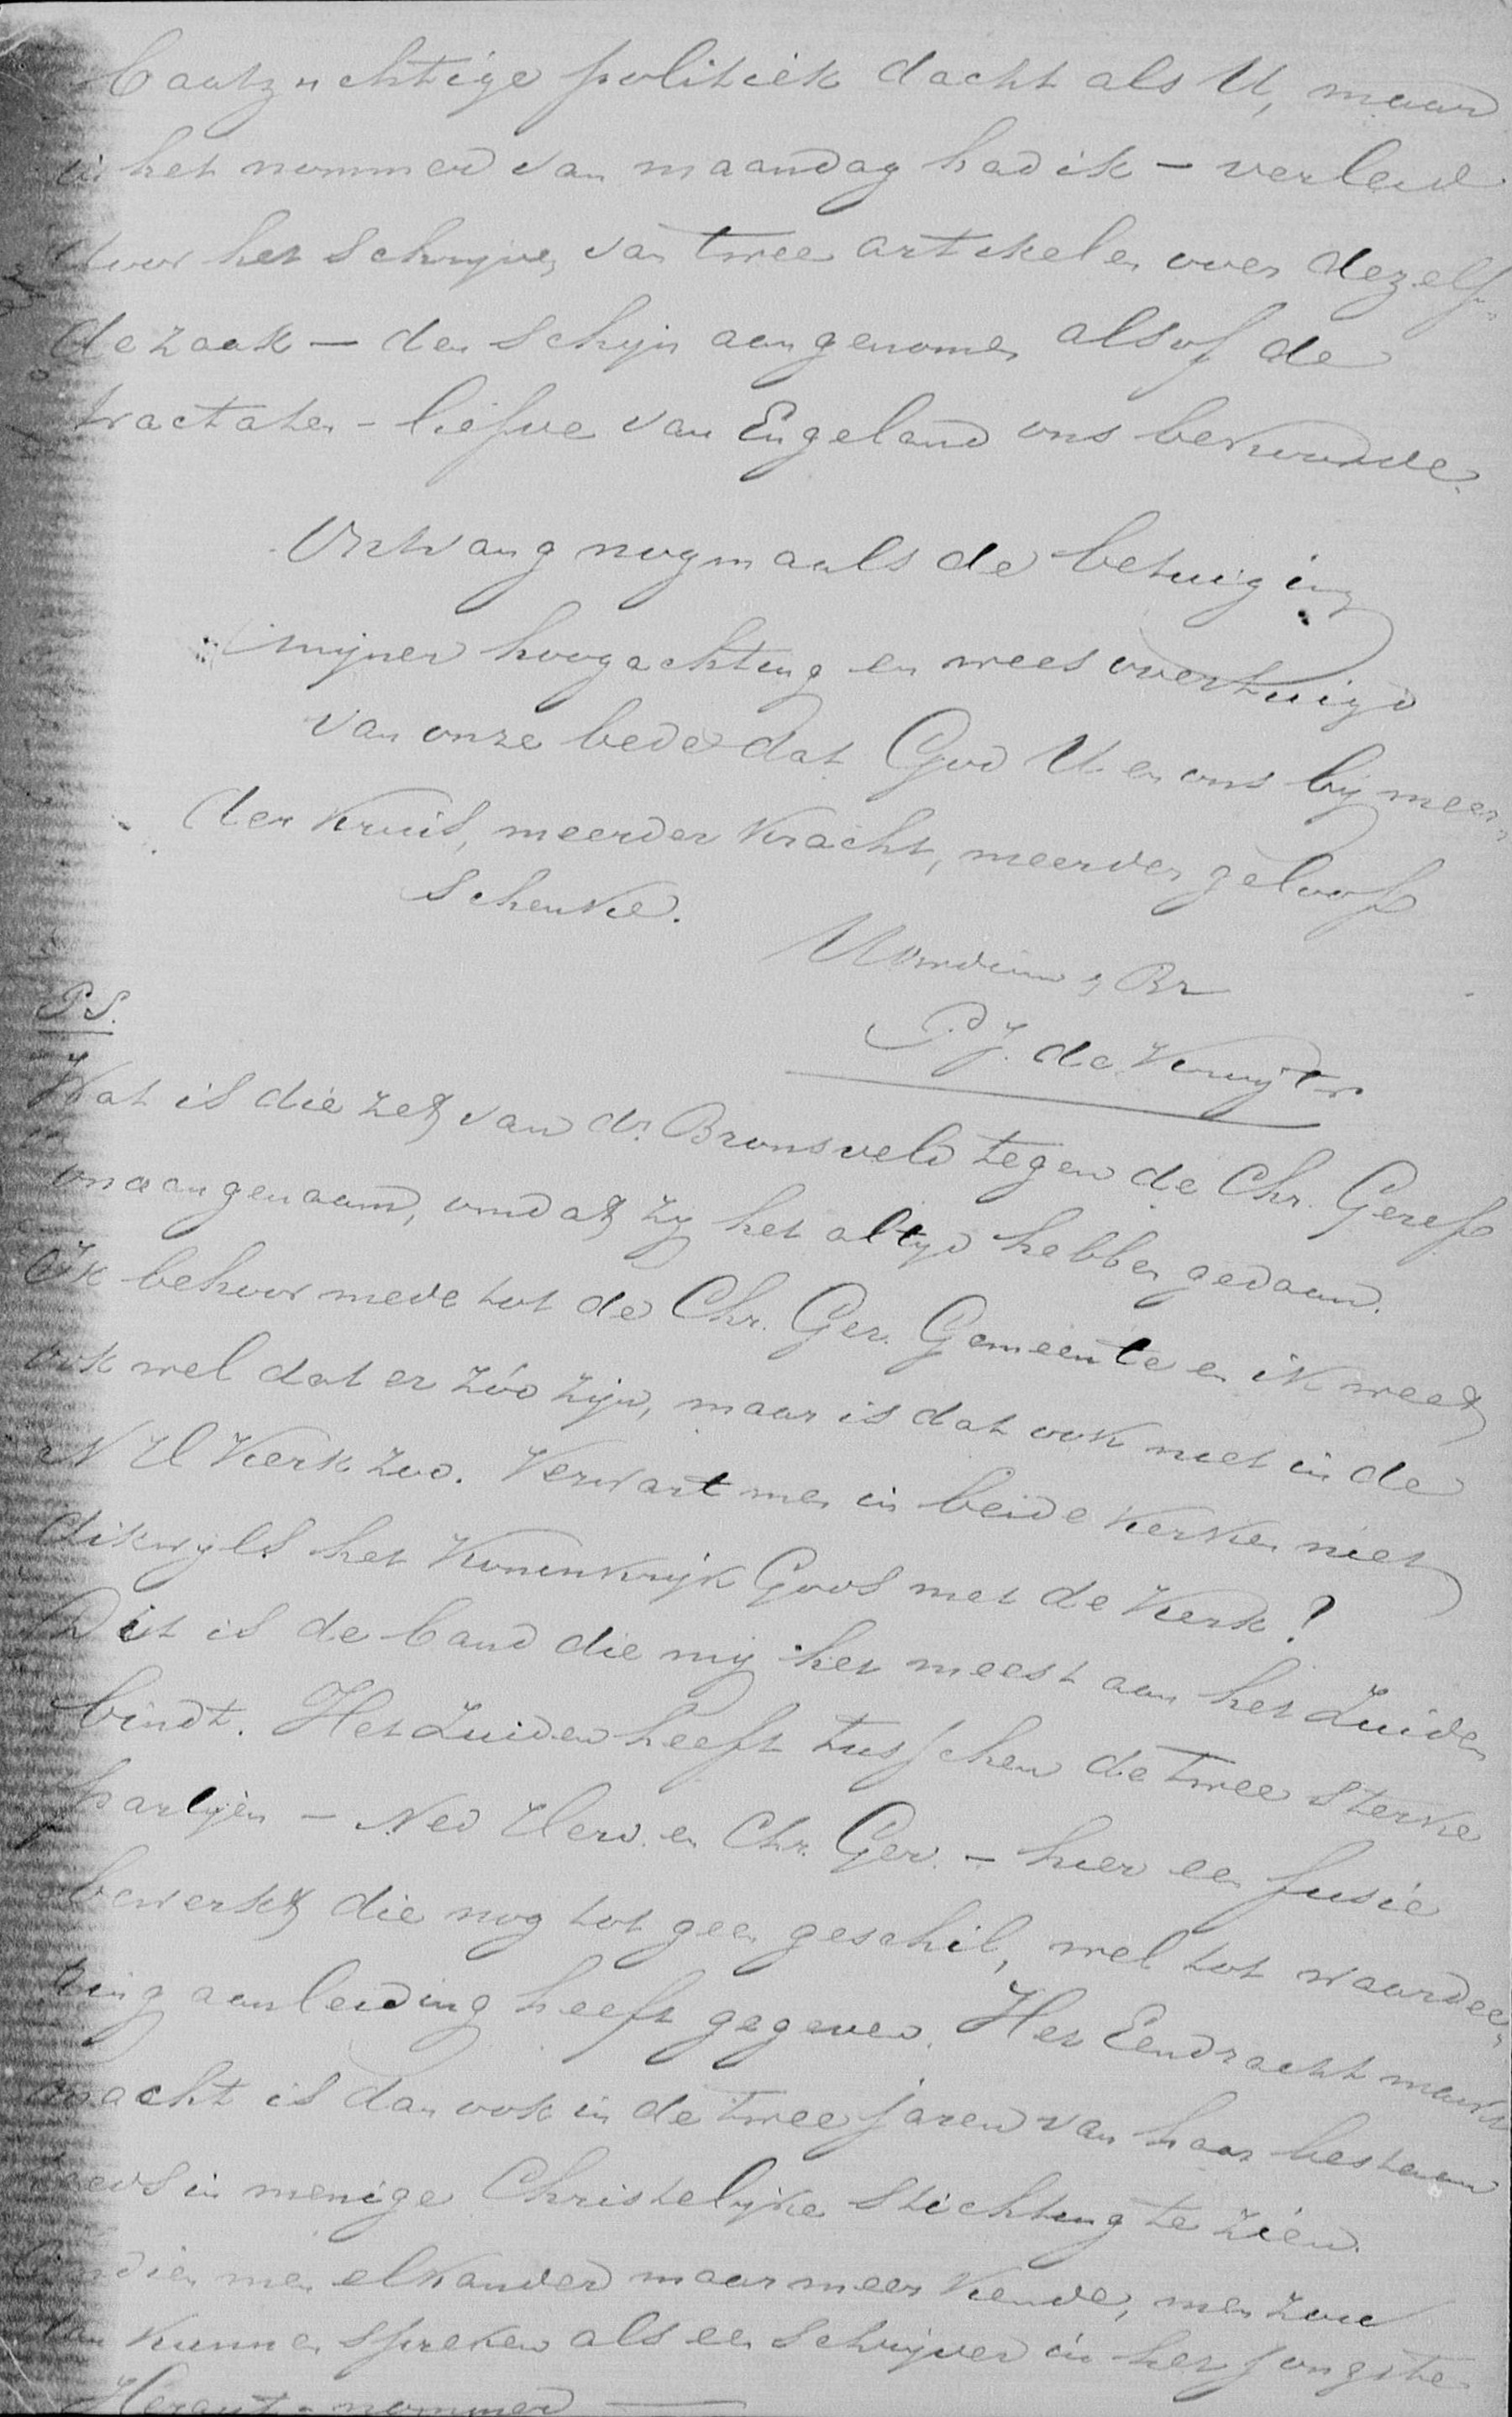 baatzuchtige politiek dacht als U, maar
in het nommer van maandag had ik – verleid
door het schrijven van twee artikelen over dezelf-
de zaak – den schijn aangenomen alsof de
tractaten-liefde van Engeland ons bekoorde.
Ontvang nogmaals de betuiging
mijner hoogachting en wees overtuigd
van onze bede dat God U en ons bij meer-
der kruis, meerder kracht, meerder geloof
schenke.
Uw dienw Br
P.J. de Kruijter
P.S.
Wat is die zet van dr. Bronsveld tegen de Chr. Geref
onaangenaam, omdat zij het altijd hebben gedaan.
Ik behoor mede tot de Chr. Ger. Gemeente en ik weet
ook wel dat er zóó zijn, maar is dat ook niet in de
N H Kerk zoo. Verwart men in beide kerken niet
dikwijls het Koninkrijk Gods met de Kerk?
Dit is de band die mij het meest aan het Zuiden
bindt. Het Zuiden heeft tusschen de twee sterke
partijen – Ned Herv. en Chr. Ger. – hier een fusie
bewerkt die nog tot geen geschil, wel tot waardee-
ring aanleiding heeft gegeven. Het Eendracht maakt
macht is dan ook in de twee jaren van haar bestaan
reeds in menige Christelijke Stichting te zien.
Indien men elkander maar meer kende, men zou
dan kunnen spreken als een schrijver in het jongste
Heraut-nommer —